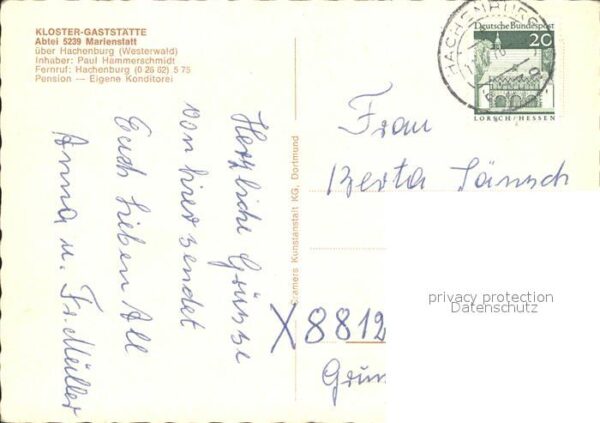 KLOSTER-GASTSTÄTTE
Abtei 5239 Marienstatt
über Hachenburg (Westerwald)
Inhaber: Paul Hammerschmidt
Fernruf: Hachenburg (0 26 62) 5 75
Pension — Eigene Konditorei
Herzliche Grüsse
von hier sendet
Euch lieben All
Anna u. Fr. Müller
Cramers Kunstanstalt KG, Dortmund
HACHENBURG
Deutsche Bundespost
20
LORSCH/HESSEN
Frau
Berta Länsch
X 8812
privacy protection
Datenschutz